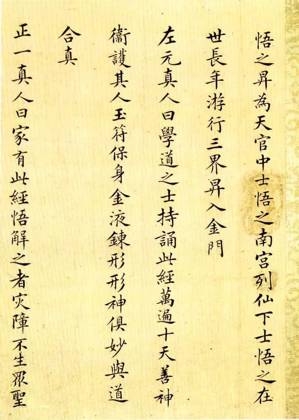 悟之昇為天官中士悟之南宮列仙下士悟之在
世長年游行三界昇入金門
左元真人曰學道之士持誦此經萬遍十天善神
衞護其人玉符保身金液鍊形形神俱妙與道
合真
正一真人曰家有此經悟解之者灾障不生眾聖